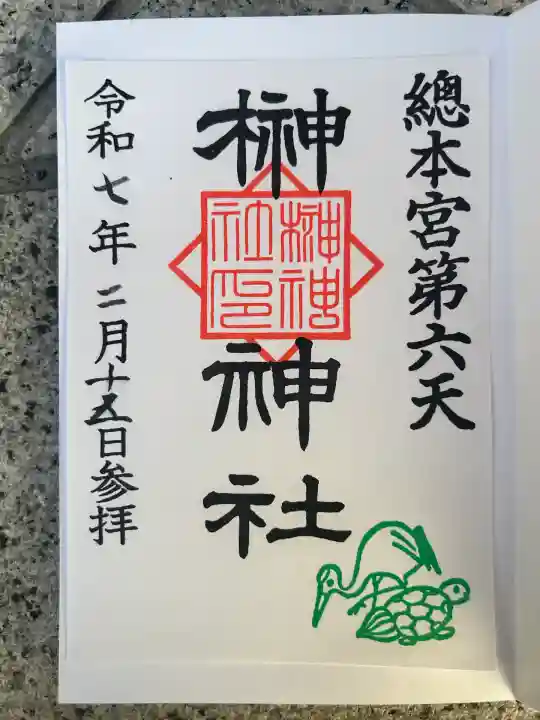 總本宮第六天
榊神社
榊神
社印
令和七年二月十五日参拝